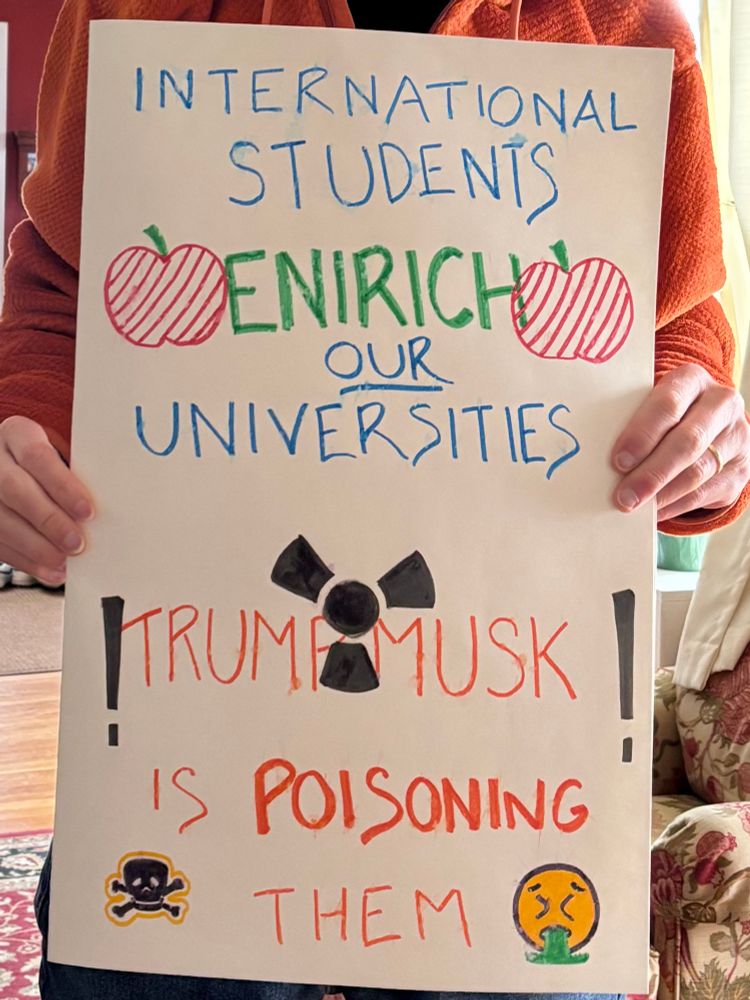 INTERNATIONAL
STUDENTS
ENIRICH
OUR
UNIVERSITIES
! TRUMP MUSK !
IS POISONING
THEM